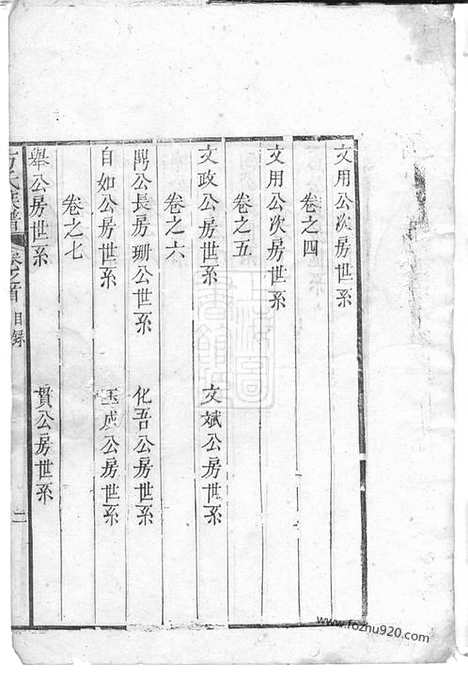 文用公次房世系
卷之四
文用公次房世系
卷之五
文政公房世系
文斌公房世系
卷之六
鳳公長房珊公世系
化吾公房世系
自如公房世系
玉成公房世系
卷之七
舉公房世系
貫公房世系
氏族譜
卷之首
目録
二
www.fozhu920.com